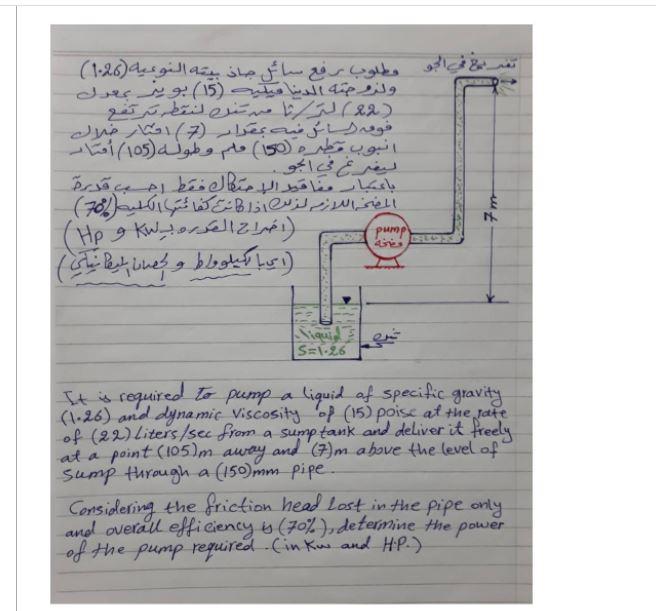 مطلوب رفع سائل جاذبيته النوعيه (1.26)
ولزوجته الديناميكيه (15) بويز بمعدل
(22) لتر/ثا من تنك لنقطه ترتفع
فوق السائل فيه بمقدار (7) امتار خلال
انبوب قطره (150) ملم وطوله (105) أمتار
ليفرغ في الجو.
باعتبار مفاقيد الاحتكاك فقط احسب قدرة
المضخه اللازمه لذلك اذا كانت كفائتها الكليه (70%)
(اخراج القدره بـ Kw و Hp)
(اي بالكيلوواط و الحصان الميكانيكي)
تفريغ في الجو
7m
pump
مضخه
liquid
S=1.26
تنك
It is required to pump a liquid of specific gravity
(1.26) and dynamic viscosity of (15) poise at the rate
of (22) liters/sec from a sump tank and deliver it freely
at a point (105)m away and (7)m above the level of
sump through a (150)mm pipe.
Considering the friction head lost in the pipe only
and overall efficiency is (70%), determine the power
of the pump required. (in Kw and H.P.)